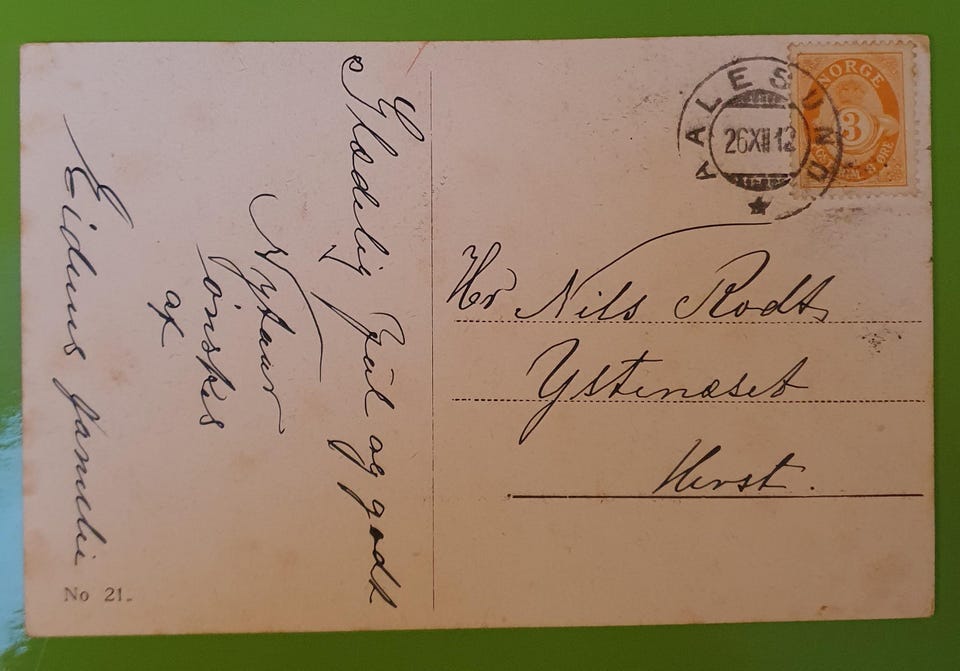 Glædelig Jul og godt
Nytaar
ønskes
af
Eidnes familie
No 21.
AALESUND
26 XII 12
NORGE
3
3 ØRE
Hr Nils Rodt
Ystenæset